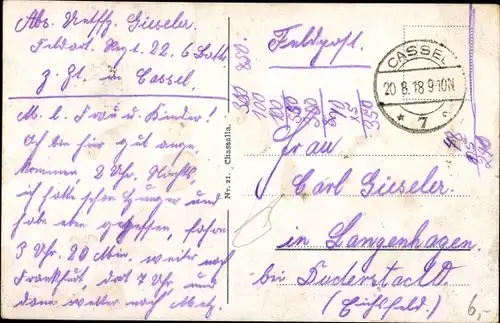 Abs. Untffz. Gieseler
Feldart. Rgt. 22. 6 Battr.
z. Zt. in Cassel.
M. l. Frau u. Kinder!
Ich bin hier gut ange
kommen 2 Uhr. Nachts,
ich hatte schon Hunger und
habe eben gegessen, fahre
3 Uhr. 20 Min. weiter nach
Frankfurt, dort 7 Uhr und
dann weiter nach Metz.
Nr. 21. Chassalla.
Feldpost.
CASSEL
20 8.18 9-10N
* 7 c
Frau
Carl Gieseler.
in Langenhagen.
bei Duderstadt.
(Eichsfeld.)
6,-